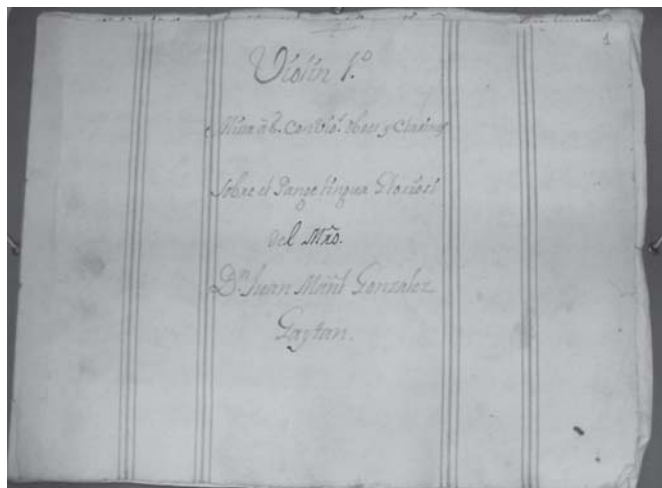 1
Violin 1.º
Missa à 8. Con Viol.s Oboes y Clarines
Sobre el Pange lingua Gloriosi
del Mro.
Dn. Juan Manl. Gonzalez
Gaytan.